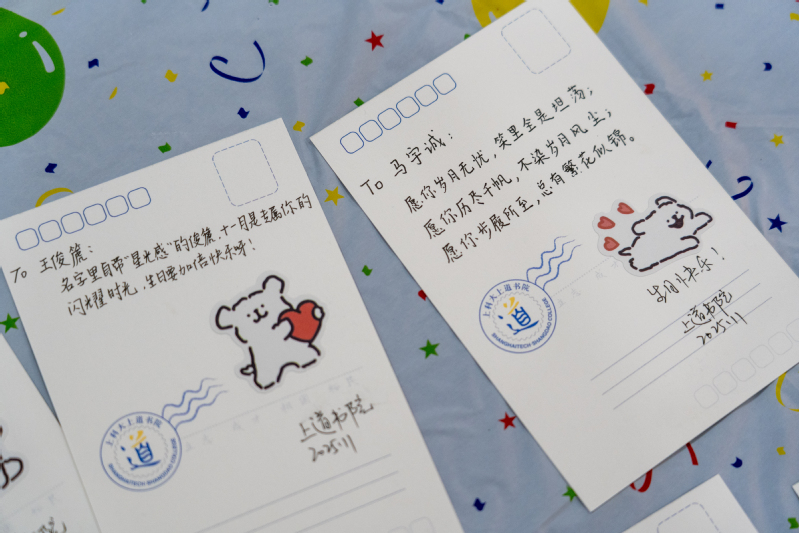 To 王俊箎：
名字里自带"星光感"的俊箎，十一月是专属你的
闪耀时光，生日要加倍快乐呀！
上道书院
2025.11
上科大上道书院
道
SHANGHAITECH SHANGDAO COLLEGE
To 马宇诚：
愿你岁月无忧，笑里全是坦荡；
愿你历尽千帆，不染岁月风尘；
愿你步履所至，总有繁花似锦。
生日快乐！
上道书院
2025.11
上科大上道书院
道
SHANGHAITECH SHANGDAO COLLEGE
书院